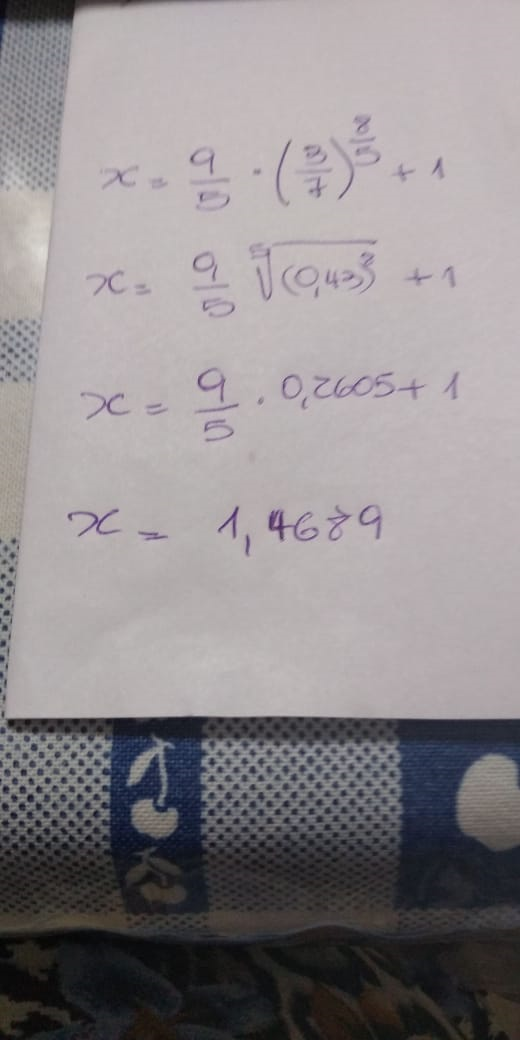 x = 9/5 · (3/7)^8/5 + 1
x = 9/5 ⁵√(0,43)⁸ + 1
x = 9/5 · 0,2605 + 1
x = 1,4689